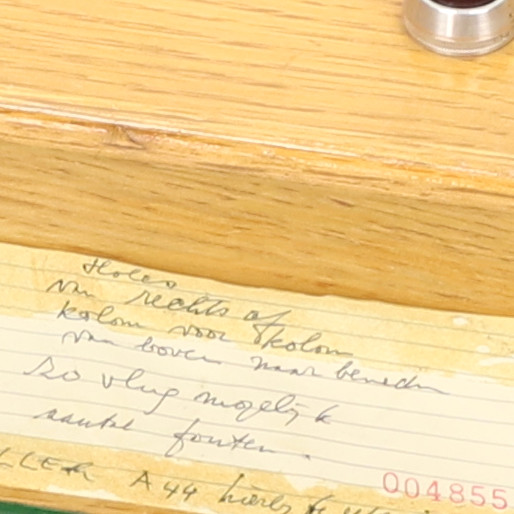 Holes
van rechts af
kolom voor kolom
van boven naar beneden
zo vlug mogelijk
aantal fouten.
A 44
004855